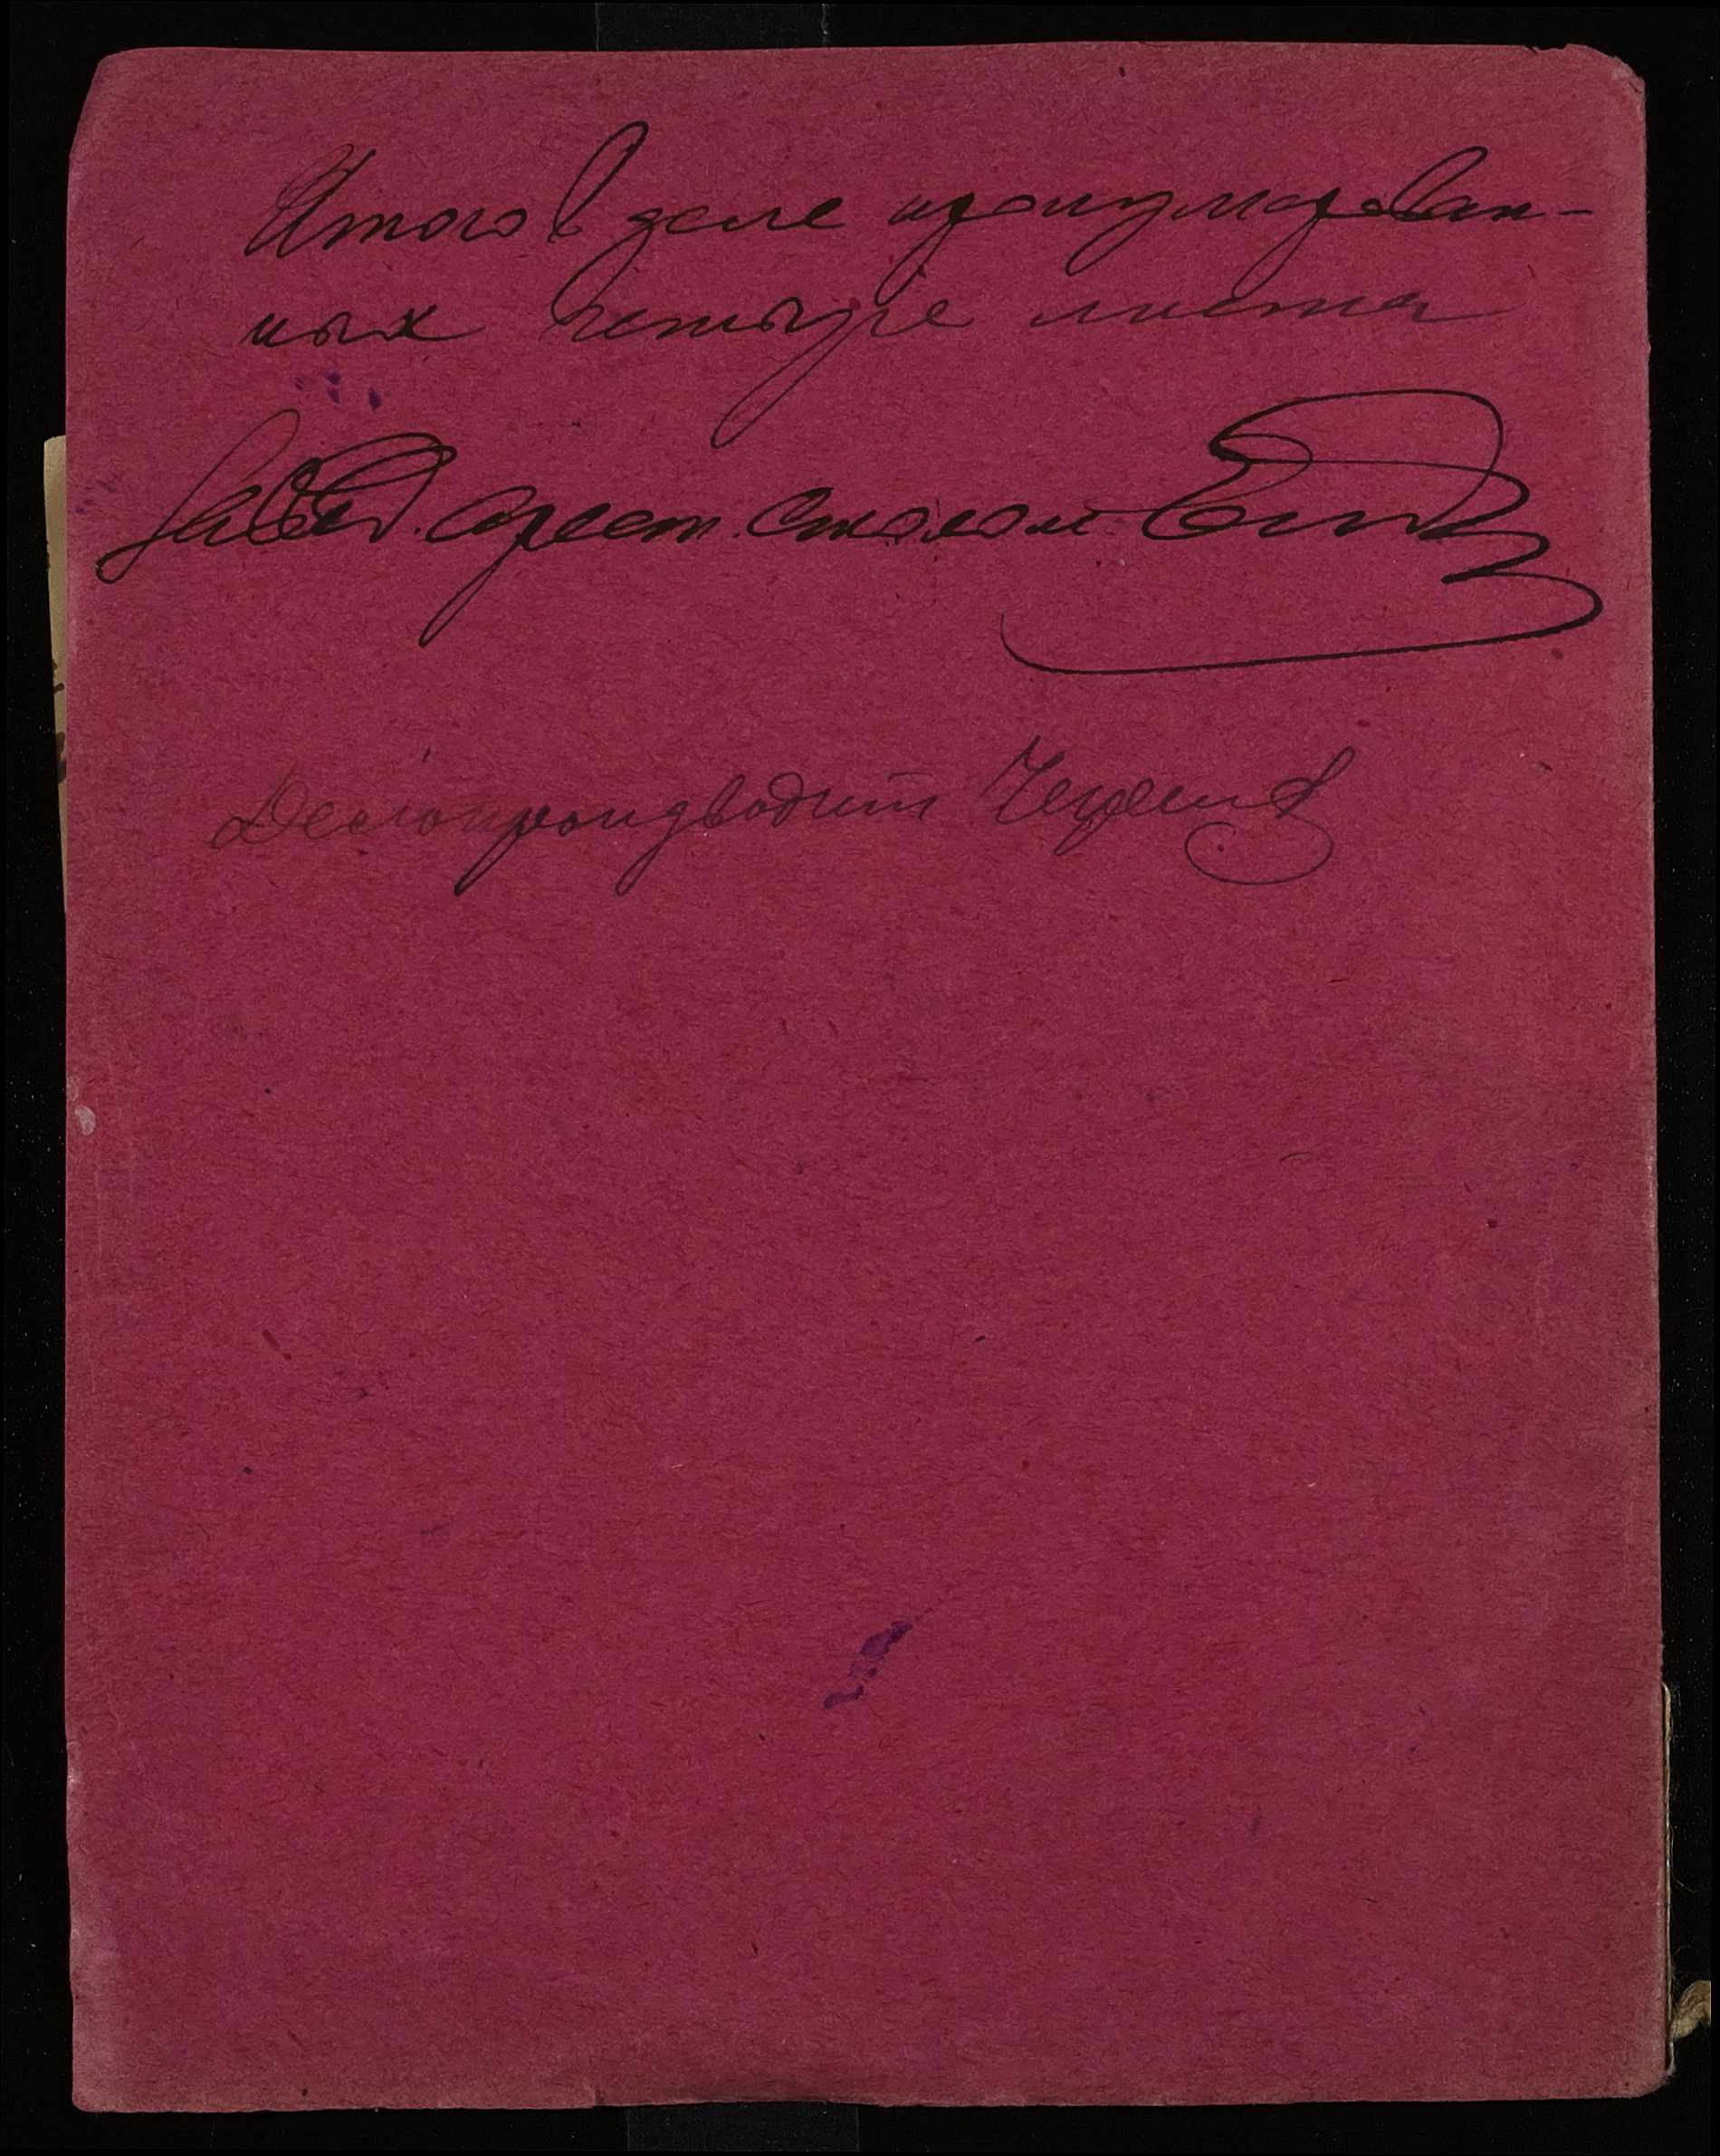 Итого в деле пронумерован-
ных четыре листа
Завед. арест. столом
Делопроизводит